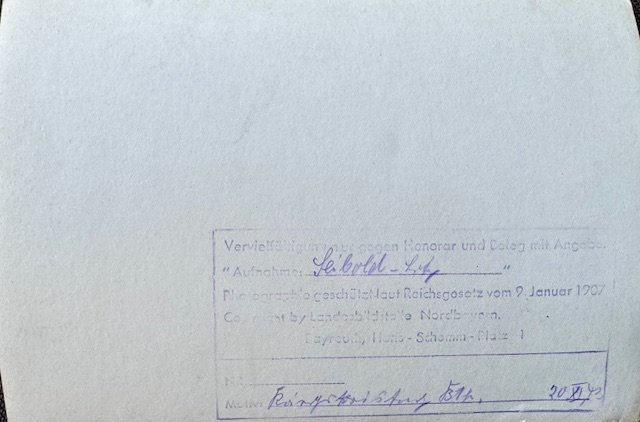 Vervielfältigung nur gegen Honorar und Beleg mit Angabe:
"Aufnahme: Seibold - "
Photographie geschützt laut Reichsgesetz vom 9. Januar 1907
Copyright by Landesbildstelle Nordbayern,
Bayreuth, Hans-Schemm-Platz 1
Nr.
Motiv: Bth. 20 XI